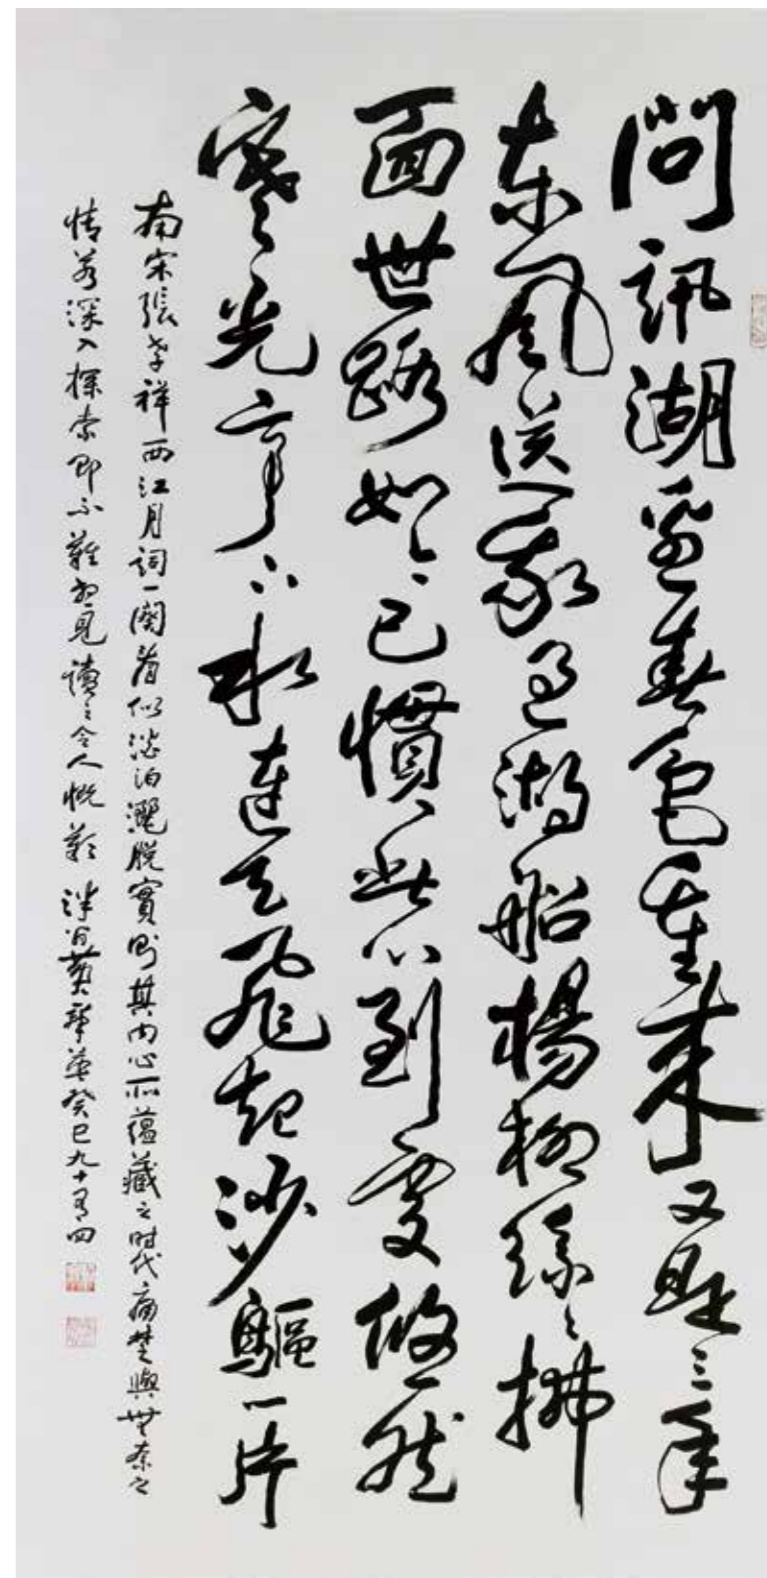 問訊湖邊春色重來又是三年
東風送我過湖船楊柳絲々拂
面世路如今已慣此心到處悠然
寒光亭下水連天飛起沙鷗一片
南宋張孝祥西江月詞一闋看似淡泊灑脫實則其內心所蘊藏之时代痛楚與無奈之
情若深入探索即不難見讀之令人慨歎 華癸巳九十有四